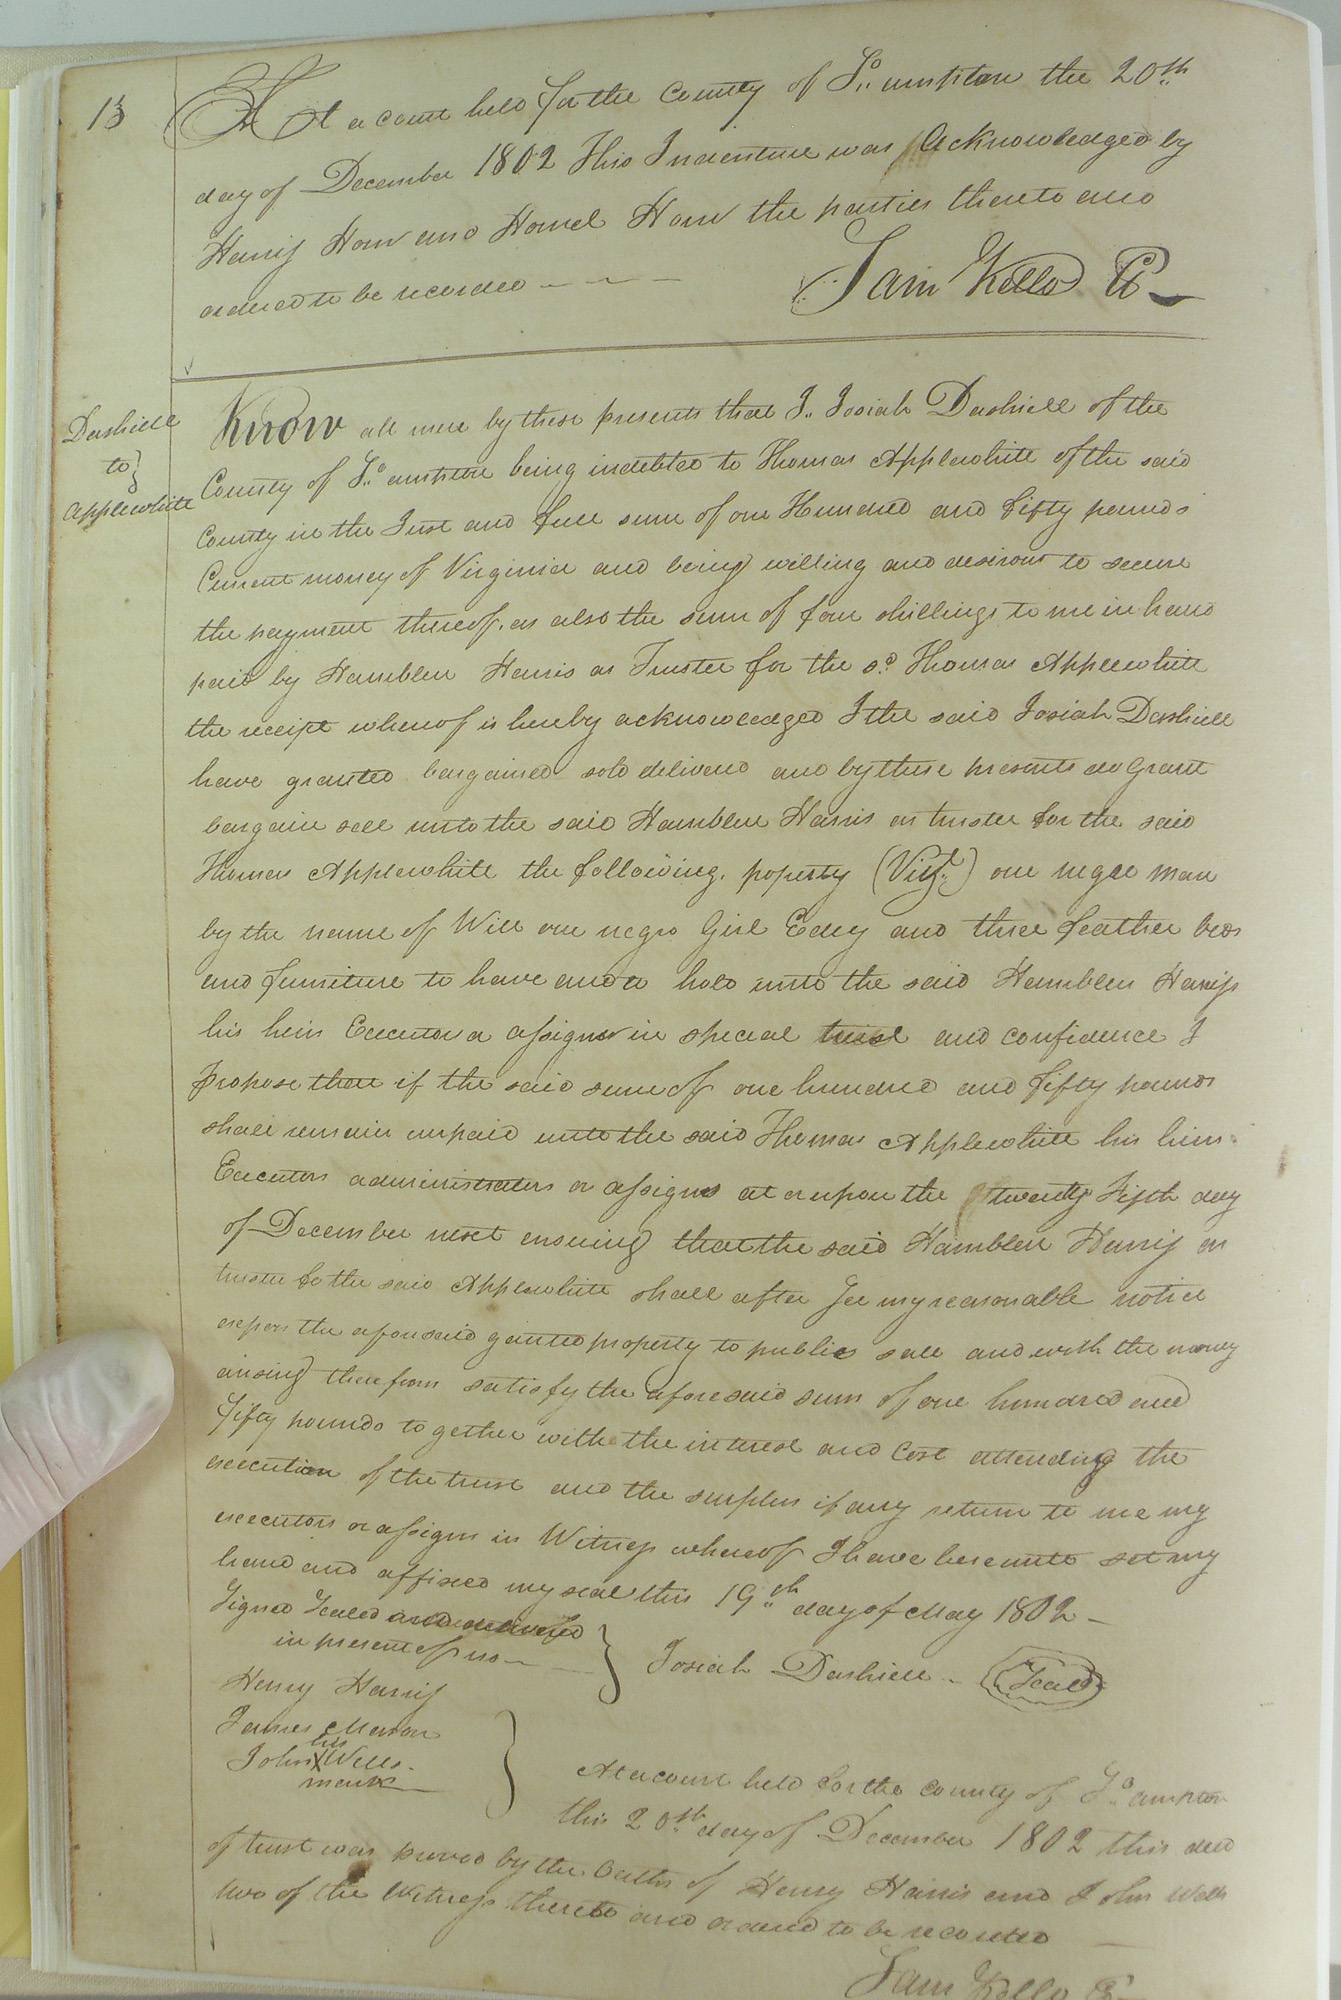 13
At a court held for the County of So.. ampton the 20th
day of December 1802 This Indenture was Acknowledged by
Harris Horn and Howel Horn the parties thereto and
ordered to be recorded - - - -
Sam Kello Cl
Dashiell
to
Applewhite
Know all men by these presents that I.. Josiah Dashiell of the
County of So.. ampton being indebted to Thomas Applewhite of the said
County in the Just and full sum of one Hundred and fifty pounds
Current money of Virginia and being willing and desirous to secure
the payment thereof. as also the sum of four shillings to me in hand
paid by Hamblen Harris as Trustee for the sd. Thomas Applewhite
the receipt whereof is hereby acknowledged I the said Josiah Dashiell
have granted bargained sold deliverd and by these presents do Grant
bargain sell unto the said Hamblen Harris as trustee for the said
Thomas Applewhite the following. property (Vizt.) one negro man
by the name of Will one negro Girl Edey and three feather beds
and furniture to have and to hold unto the said Hamblen Harris
his heirs Executors or assigns in special trust and confidence I
propose that if the said sum of one hundred and fifty pounds
shall remain unpaid unto the said Thomas Applewhite his heirs
Executors administrators or assigns at or upon the twenty Fifth day
of December next ensuing that the said Hamblen Harris as
trustee to the said Applewhite shall after reasonable notice
expose the aforesaid granted property to public sale and with the money
arising therefrom satisfy the aforesaid sum of one hundred and
fifty pounds together with the interest and Cost attending the
execution of the trust and the surplus if any return to me my
executors or assigns in Witness whereof I have hereunto set my
hand and affixed my seal this 19..th day of May 1802 -
Signed Sealed and delivered
in present of us - -
Josiah Dashiell - Seal
Henry Harris
James Mason
his
John X Wells.
mark
At a court held for the County of So. ampton
this 20th day of December 1802 this deed
of trust was proved by the Oaths of Henry Harris and John Wells
two of the Witness thereto and ordered to be recorded -
Sam Kello Cl